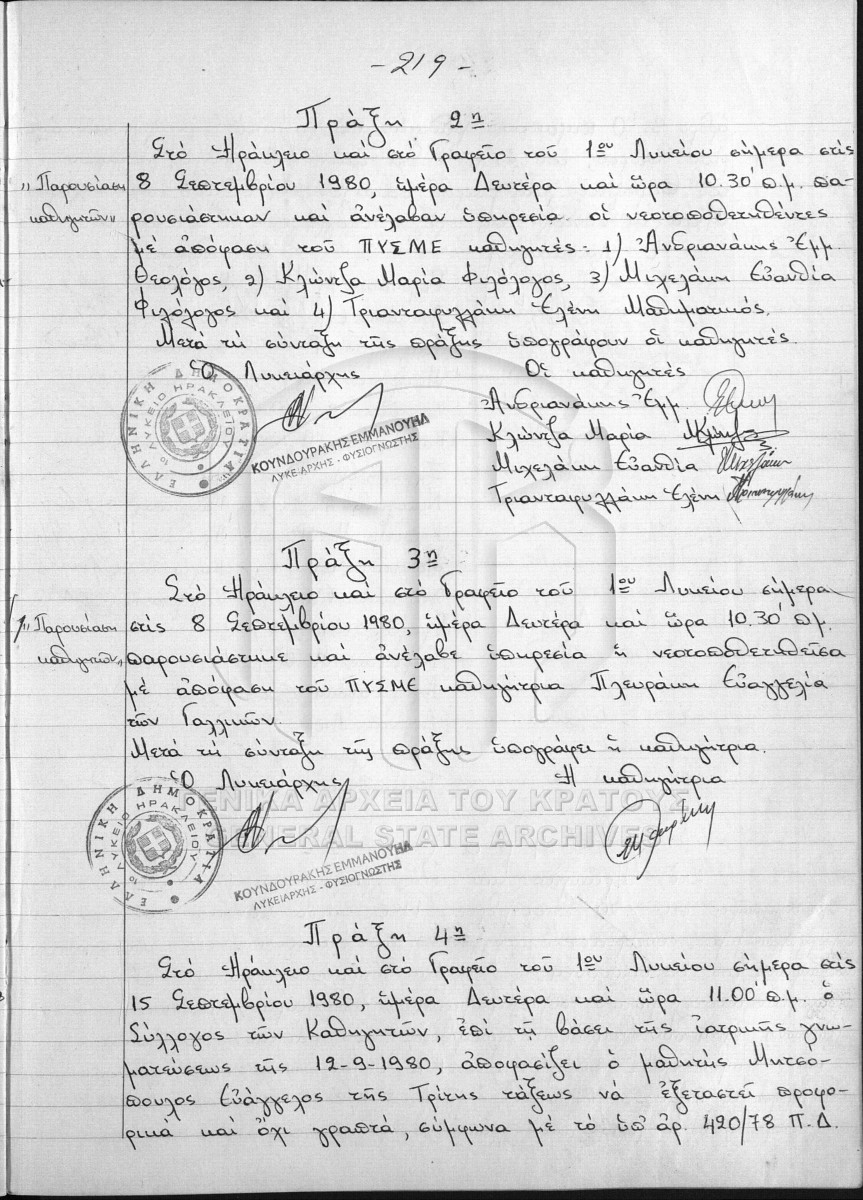 - 219 -
Πράξη 2η
Στό Ἡράκλειο καί στό Γραφεῖο τοῦ 1ου Λυκείου σήμερα στίς
„Παρουσίαση
καθηγητῶν"
8 Σεπτεμβρίου 1980, ἡμέρα Δευτέρα καί ὥρα 10.30' π.μ. πα-
ρουσιάστηκαν καί ἀνέλαβαν ὑπηρεσία οἱ νεοτοποθετηθέντες
μέ ἀπόφαση τοῦ ΠΥΣΜΕ καθηγητές: 1) Ἀνδριανάκης Ἐμμ.
Θεολόγος, 2) Κλώντζα Μαρία Φιλόλογος, 3) Μιχελάκη Εὐανθία
Φιλόλογος καί 4) Τριανταφυλλάκη Ἑλένη Μαθηματικός.
Μετά τή σύνταξη τῆς πράξης ὑπογράφουν οἱ καθηγητές.
Ὁ Λυκειάρχης Οἱ καθηγητές
ΕΛΛΗΝΙΚΗ ΔΗΜΟΚΡΑΤΙΑ
1ο ΛΥΚΕΙΟ ΗΡΑΚΛΕΙΟΥ
ΚΟΥΝΔΟΥΡΑΚΗΣ ΕΜΜΑΝΟΥΗΛ
ΛΥΚΕΙΑΡΧΗΣ - ΦΥΣΙΟΓΝΩΣΤΗΣ
Ἀνδριανάκης Ἐμμ.
Κλώντζα Μαρία
Μιχελάκη Εὐανθία
Τριανταφυλλάκη Ἑλένη
Πράξη 3η
Στό Ἡράκλειο καί στό Γραφεῖο τοῦ 1ου Λυκείου σήμερα
„Παρουσίαση
καθηγητῶν"
στίς 8 Σεπτεμβρίου 1980, ἡμέρα Δευτέρα καί ὥρα 10.30' π.μ.
παρουσιάστηκε καί ἀνέλαβε ὑπηρεσία ἡ νεοτοποθετηθεῖσα
μέ ἀπόφαση τοῦ ΠΥΣΜΕ καθηγήτρια Πλευράκη Εὐαγγελία
τῶν Γαλλικῶν.
Μετά τή σύνταξη τῆς πράξης ὑπογράφει ἡ καθηγήτρια.
Ὁ Λυκειάρχης Ἡ καθηγήτρια
ΕΛΛΗΝΙΚΗ ΔΗΜΟΚΡΑΤΙΑ
1ο ΛΥΚΕΙΟ ΗΡΑΚΛΕΙΟΥ
ΓΕΝΙΚΑ ΑΡΧΕΙΑ ΤΟΥ ΚΡΑΤΟΥΣ
GENERAL STATE ARCHIVES
ΚΟΥΝΔΟΥΡΑΚΗΣ ΕΜΜΑΝΟΥΗΛ
ΛΥΚΕΙΑΡΧΗΣ - ΦΥΣΙΟΓΝΩΣΤΗΣ
Πράξη 4η
Στό Ἡράκλειο καί στό Γραφεῖο τοῦ 1ου Λυκείου σήμερα στίς
15 Σεπτεμβρίου 1980, ἡμέρα Δευτέρα καί ὥρα 11.00' π.μ. ὁ
Σύλλογος τῶν Καθηγητῶν, ἐπί τῇ βάσει τῆς ἰατρικῆς γνω-
ματεύσεως τῆς 12-9-1980, ἀποφασίζει ὁ μαθητής Μητσό-
πουλος Εὐάγγελος τῆς Τρίτης τάξεως νά ἐξεταστεῖ προφο-
ρικά καί ὄχι γραπτά, σύμφωνα μέ τό ὑπ' ἀρ. 420/78 Π.Δ.